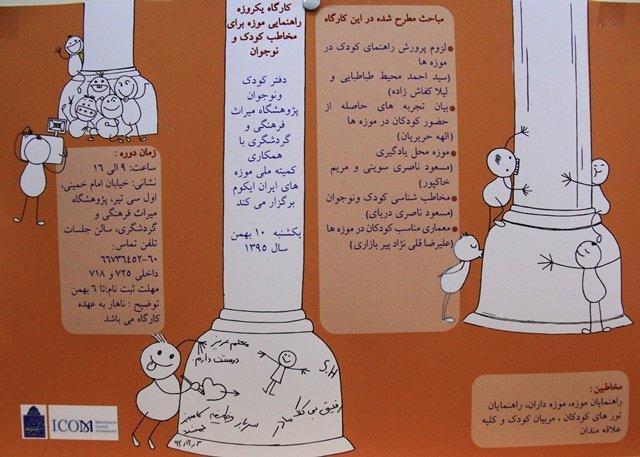 کارگاه یکروزه
راهنمایی موزه برای
مخاطب کودک و
نوجوان
دفتر کودک
ونوجوان
پژوهشگاه میراث
فرهنگی و
گردشگری با
همکاری
کمیته ملی موزه
های ایران ایکوم
برگزار می کند
یکشنبه ۱۰ بهمن
سال ۱۳۹۵
مباحث مطرح شده در این کارگاه
لزوم پرورش راهنمای کودک در
موزه ها
(سید احمد محیط طباطبایی و
لیلا کفاش زاده)
بیان تجربه های حاصله از
حضور کودکان در موزه ها
(الهه حریریان)
موزه محل یادگیری
(مسعود ناصری سوینی و مریم
خاکپور)
مخاطب شناسی کودک ونوجوان
(مسعود ناصری دریای)
معماری مناسب کودکان در موزه ها
(علیرضا قلی نژاد پیر بازاری)
زمان دوره :
ساعت: ۹ الی ۱۶
نشانی: خیابان امام خمینی،
اول سی تیر، پژوهشگاه
میراث فرهنگی و
گردشگری، سالن جلسات
تلفن تماس:
۶۶۷۳۶۴۵۲-۶۰
داخلی ۷۲۵ و ۷۱۸
مهلت ثبت نام:تا ۶ بهمن
توضیح : ناهار به عهده
کارگاه می باشد
مخاطبین:
راهنمایان موزه، موزه داران، راهنمایان
تور های کودکان ، مربیان کودک و کلیه
علاقه مندان
معلم عزیز
دوستت دارم
S.H
ICOM international council of museums